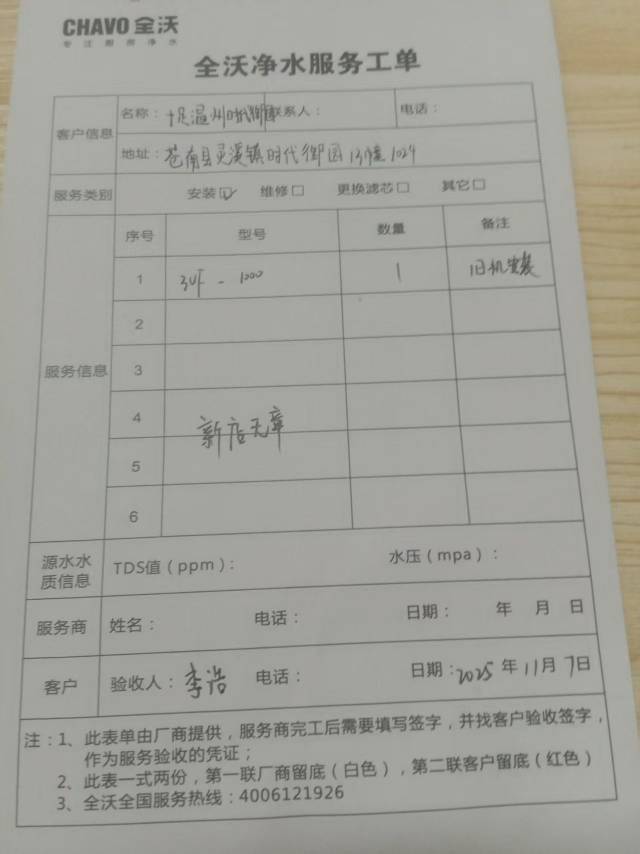 CHAVO 全沃
专注厨房净水
全沃净水服务工单
客户信息
名称：十足温州时代御园 联系人： 电话：
地址：苍南县灵溪镇时代御园13幢1024
服务类别 安装☑ 维修□ 更换滤芯□ 其它□
服务信息
序号 型号 数量 备注
1 3UF-1000 1 旧机安装
2
3
4
新店无章
5
6
源水水质信息 TDS值（ppm）： 水压（mpa）：
服务商 姓名： 电话： 日期： 年 月 日
客户 验收人：李浩 电话： 日期：2025年11月7日
注：1、此表单由厂商提供，服务商完工后需要填写签字，并找客户验收签字，
作为服务验收的凭证；
2、此表一式两份，第一联厂商留底（白色），第二联客户留底（红色）
3、全沃全国服务热线：4006121926